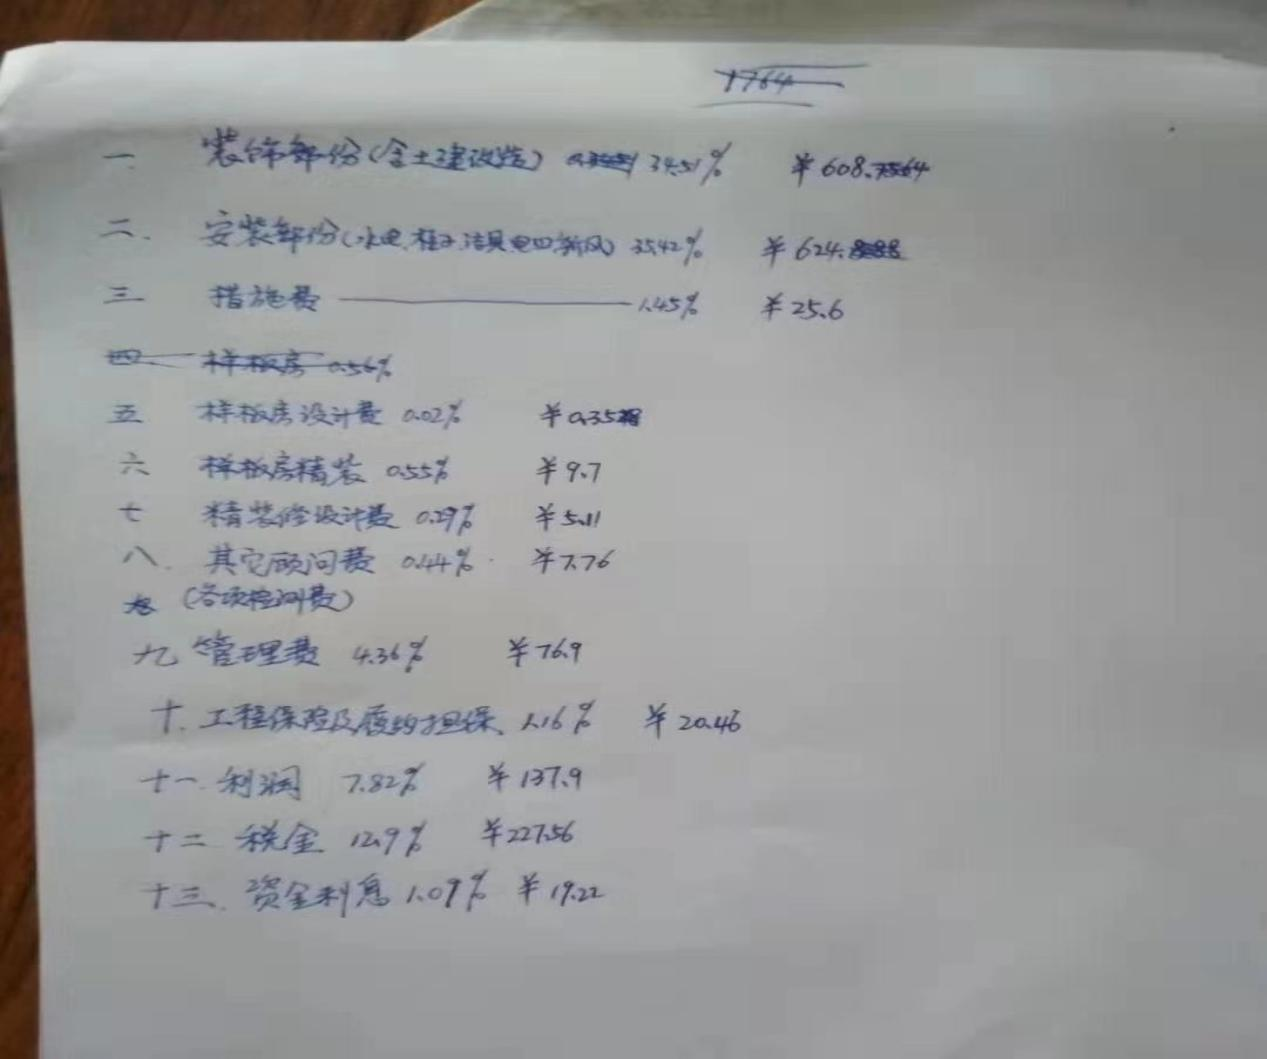 1764
一 装饰部份(含土建改造) 34.51% ¥608.7564
二. 安装部份(水电,柜子,洁具,电四新风) 35.42% ¥624.8888
三 措施费 1.45% ¥25.6
四 样板房 0.56%
五 样板房设计费 0.02% ¥0.35
六 样板房精装 0.55% ¥9.7
七 精装修设计费 0.29% ¥5.11
八. 其它顾问费 0.44% ¥7.76
(各项检测费)
九 管理费 4.36% ¥76.9
十. 工程保险及履约担保 1.16% ¥20.46
十一. 利润 7.82% ¥137.9
十二 税金 12.9% ¥227.56
十三. 资金利息 1.09% ¥19.22